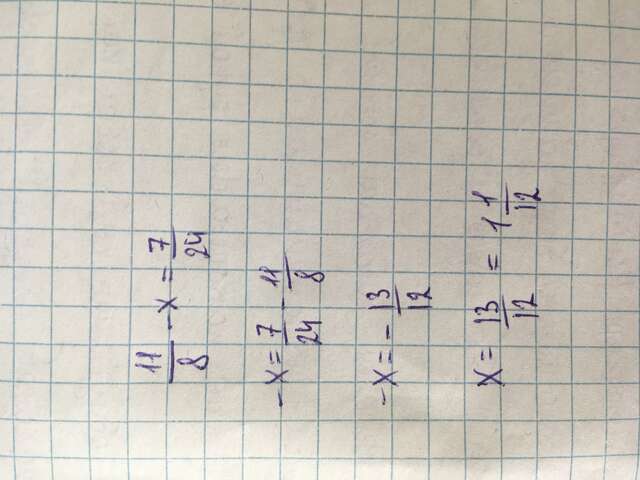 11/8 - x = 7/24
-x = 7/24 - 11/8
-x = - 13/12
x = 13/12 = 1 1/12